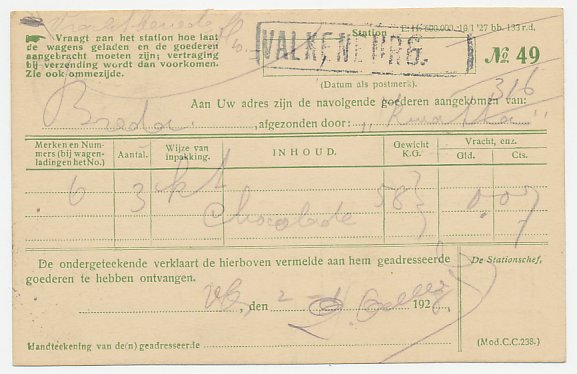 Vraagt aan het station hoe laat
de wagens geladen en de goederen
aangebracht moeten zijn; vertraging
bij verzending wordt dan voorkomen.
Zie ook ommezijde.
Station
VALKENBURG.
№ 49
(Datum als postmerk).
316
Aan Uw adres zijn de navolgende goederen aangekomen van:
Breda, afgezonden door:
Merken en Num-
mers (bij wagen-
ladingen het No.)
Aantal.
Wijze van
inpakking.
INHOUD.
Gewicht
K.G.
Vracht, enz.
Gld.
Cts.
6 3 kt Chocolade 58 0.07
De ondergeteekende verklaart de hierboven vermelde aan hem geadresseerde
goederen te hebben ontvangen.
De Stationschef,
Vk, den 2 192
Handteekening van de(n) geadresseerde
(Mod. C.C. 238.)